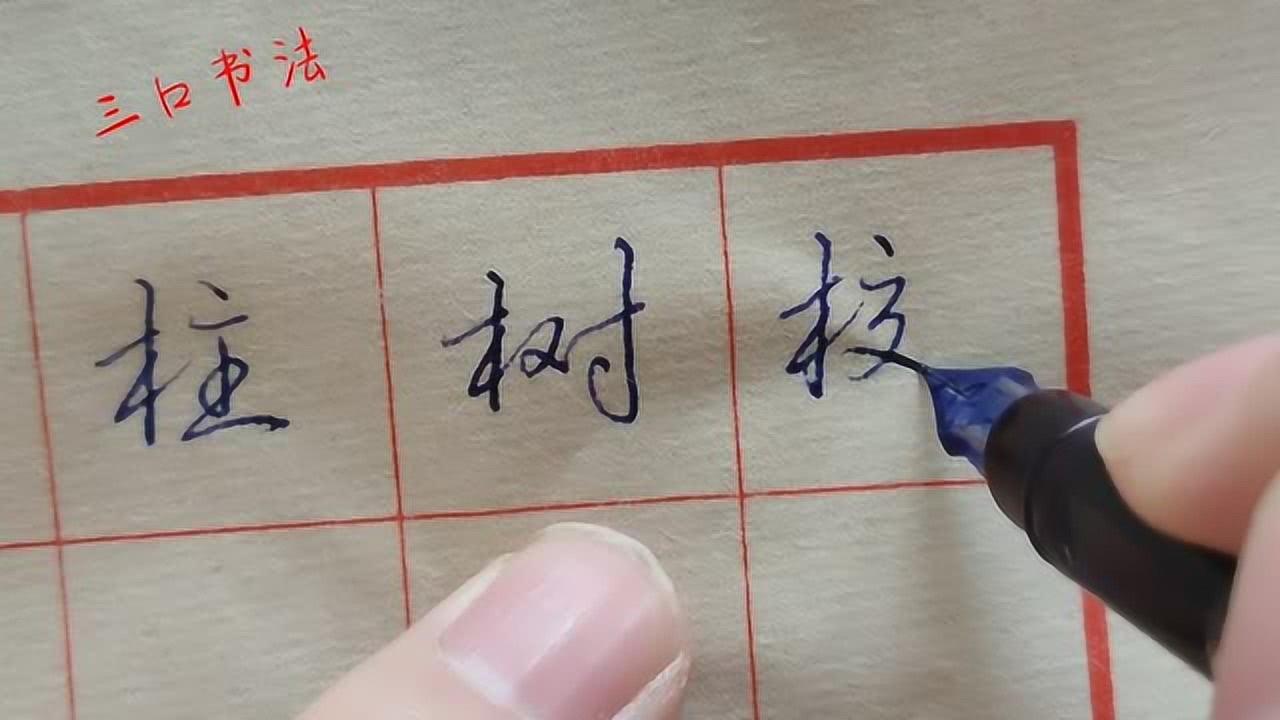 三口书法
柱 树 校